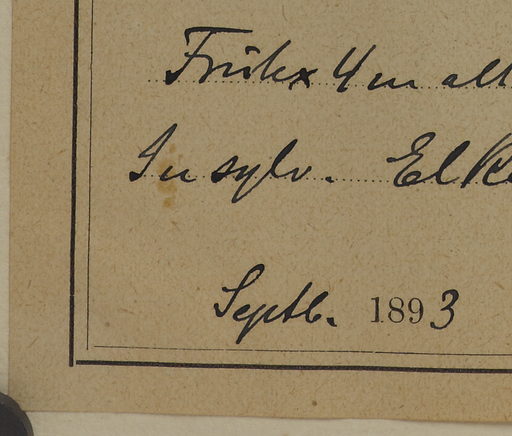 Frutex 4 m alt
In sylv. El R
Septb. 1893